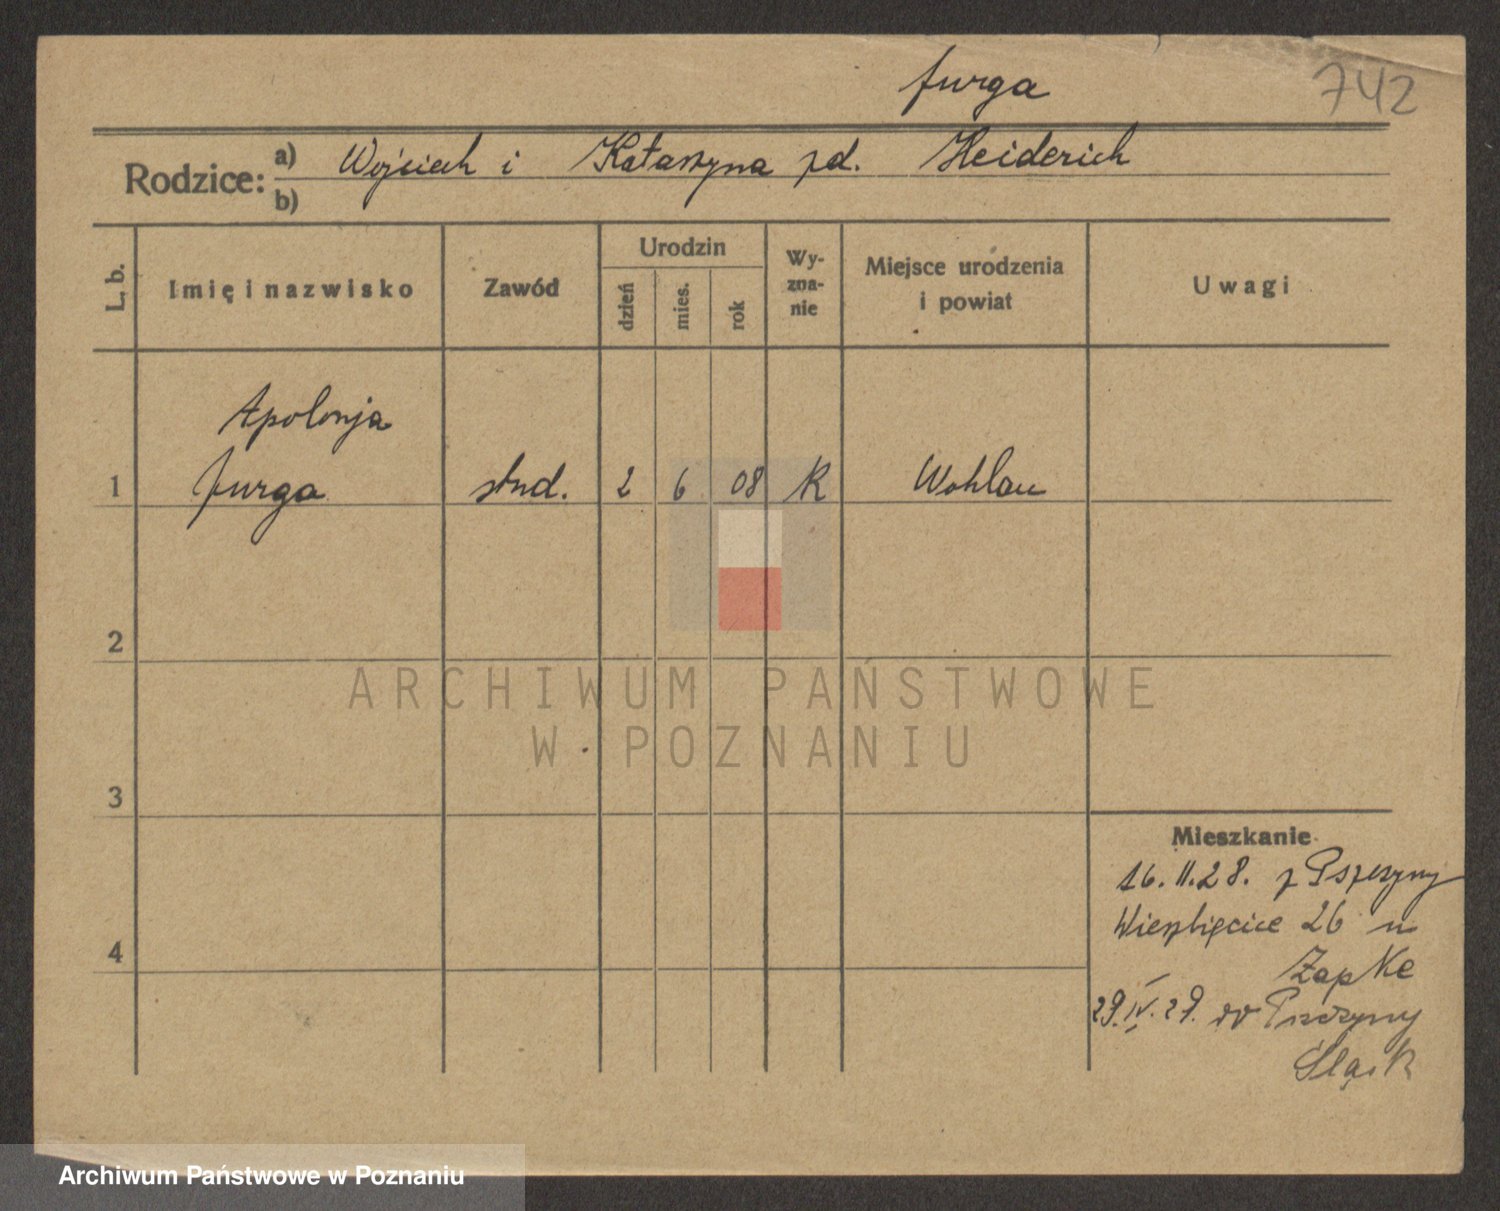 Jurga
742
Rodzice: a) Wojciech i Katarzyna zd. Heiderich
b)
L. b.
Imię i nazwisko
Zawód
Urodzin
dzień
mies.
rok
Wy-
zna-
nie
Miejsce urodzenia
i powiat
Uwagi
Apolonja
1 Jurga stud. 2 6 08 K Wohlau
2
3
4
Mieszkanie
16. II. 28. z Pszczyny
Wierzbięcice 26 u
Zapke
29. IV. 29. do Pszczyny
Śląsk
ARCHIWUM PAŃSTWOWE
W POZNANIU
Archiwum Państwowe w Poznaniu